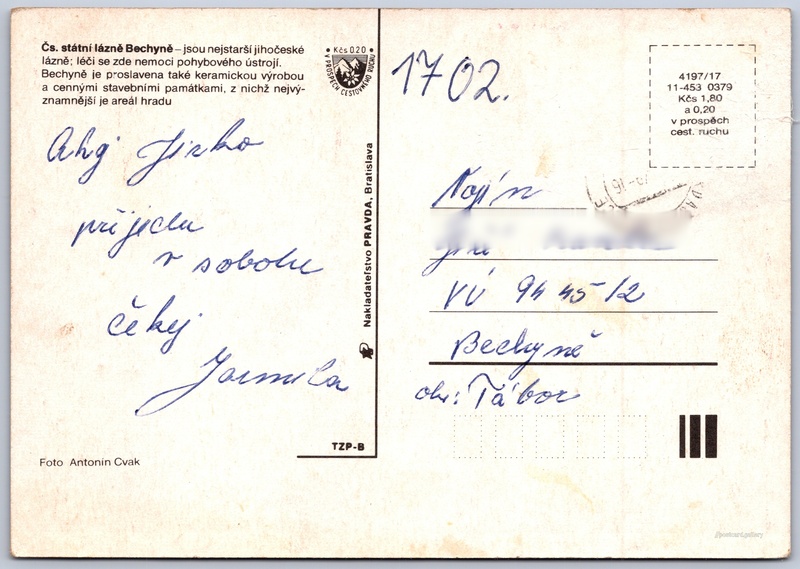 Čs. státní lázně Bechyně – jsou nejstarší jihočeské
lázně; léčí se zde nemoci pohybového ústrojí.
Bechyně je proslavena také keramickou výrobou
a cennými stavebními památkami, z nichž nejvý-
znamnější je areál hradu
Kčs 0.20
V PROSPĚCH CESTOVNÍHO RUCHU
Ahoj Jirko
přijedu
v sobotu
čekej
Jarmila
Foto Antonín Cvak
TZP-B
Nakladatelství PRAVDA, Bratislava
17 02.
4197/17
11-453 0379
Kčs 1,80
a 0,20
v prospěch
cest. ruchu
Vojín
VÚ 94 45/2
Bechyně
okr: Tábor